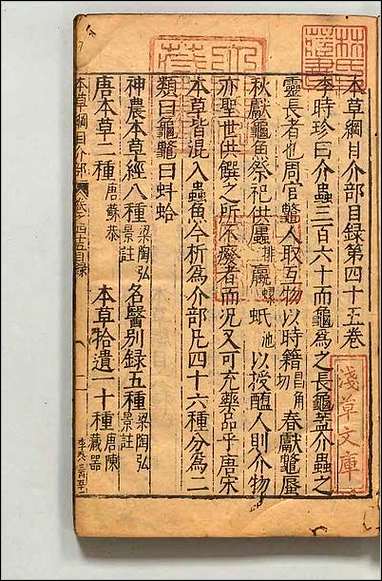 本草綱目介部目録第四十五卷
李時珍曰介蟲三百六十而龜為之長龜蓋介蟲之
靈長者也周官鼈人取互物以時籍昌角切春獻鼈蜃
秋獻龜魚祭祀供蠯排蠃螺蚳池以授醢人則介物
亦聖世供饌之所不廢者而況又可充藥品乎唐宋
本草皆混入蟲魚今析為介部凡四十六種分為二
類曰龜鼈曰蚌蛤
神農本草經八種梁陶弘景註 名醫別録五種梁陶弘景註
唐本草二種唐蘇恭 本草拾遺一十種唐陳藏器
本草綱目介部 卷之四十五目録
淺草文庫